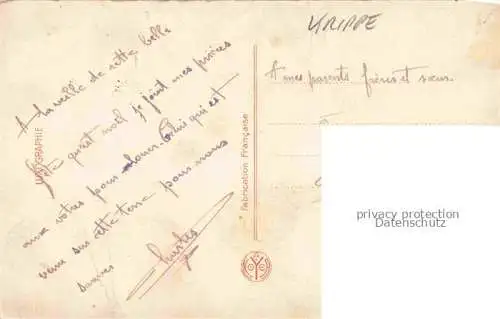 A la veille de cette belle
fête qu'est noël je joint mes prières
aux votres pour louer Celui qui est
venu sur cette terre pour nous
sauver
LUX GRAPHIE
Fabrication Française
KRIPPE
A mes parents frères et sœur
privacy protection
Datenschutz